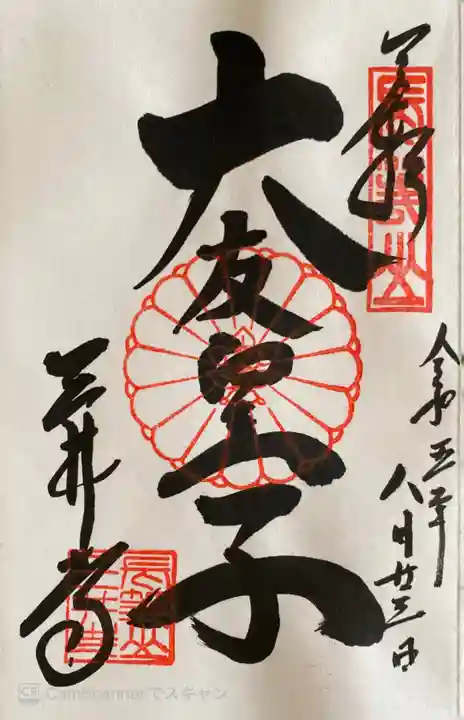 奉拝
長等山
令和五年
八月廿三日
大友皇子
三井寺
CS CamScannerでスキャン